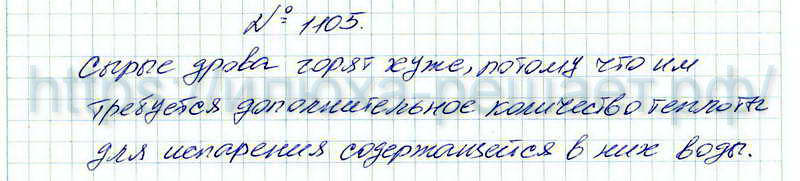 № 1105.
Сырые дрова горят хуже, потому что им
требуется дополнительное количество теплоты
для испарения содержащейся в них воды.